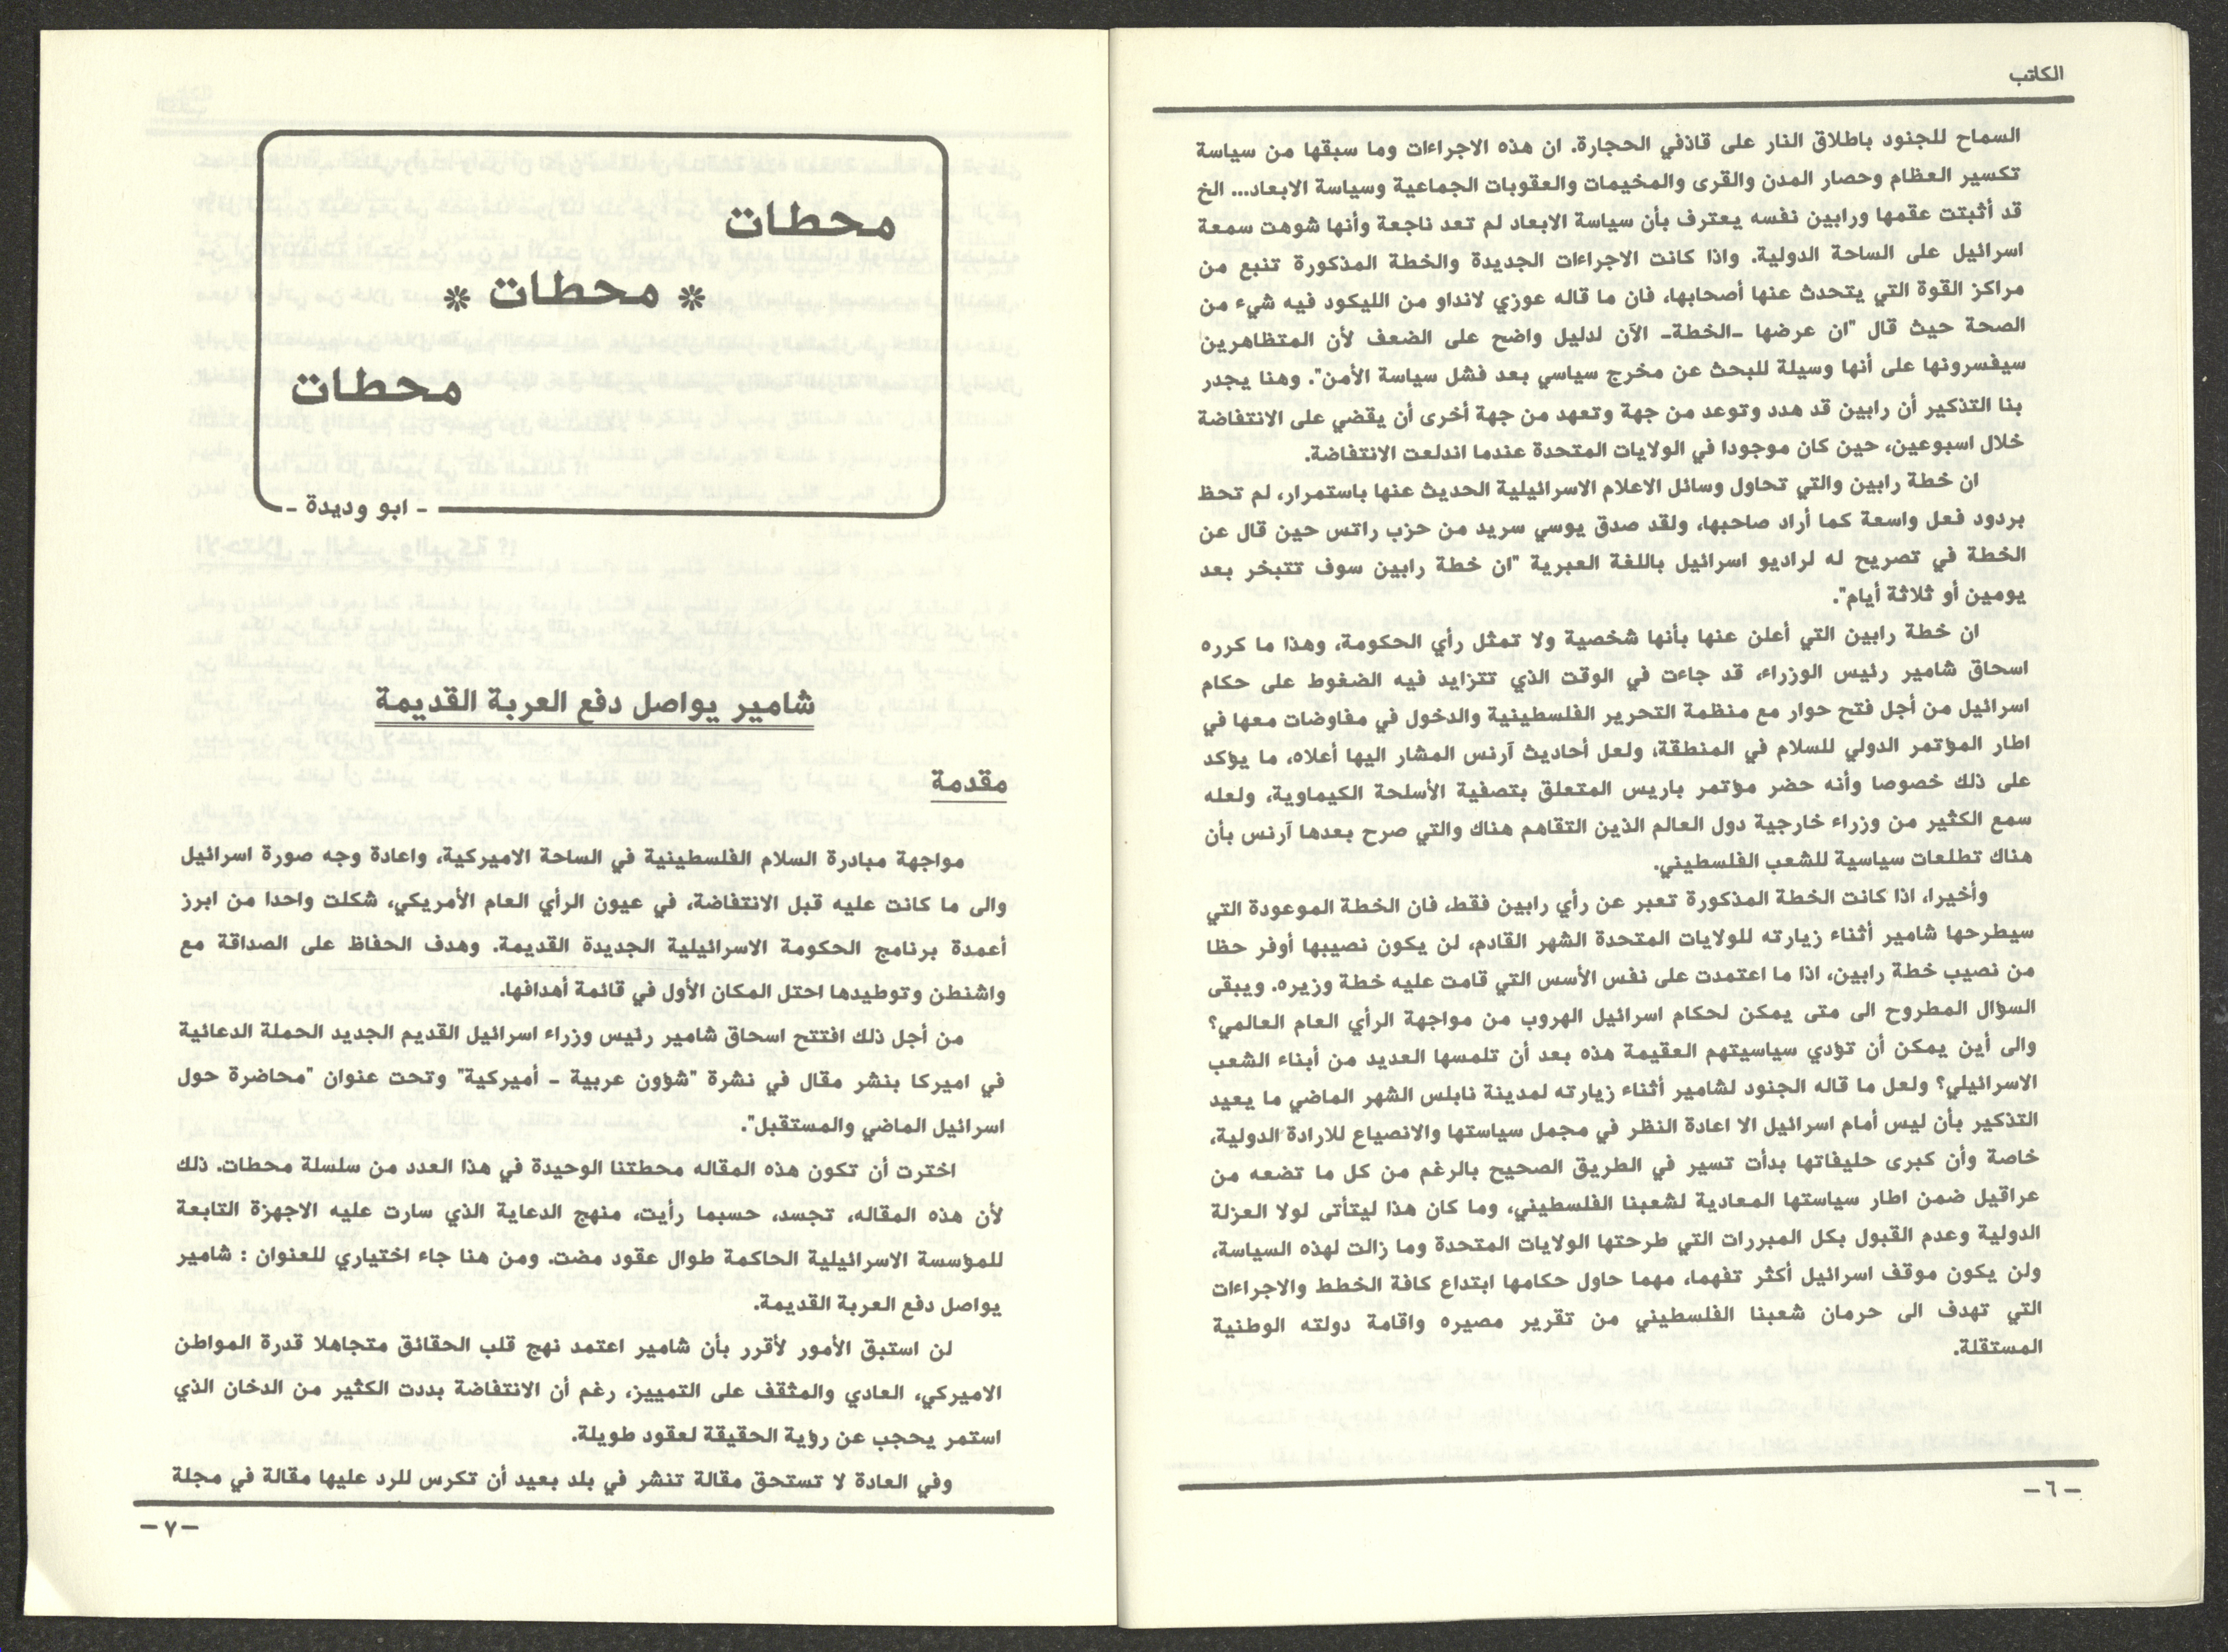 الكاتب
السماح للجنود باطلاق النار على قاذفي الحجارة. ان هذه الاجراءات وما سبقها من سياسة
تكسير العظام وحصار المدن والقرى والمخيمات والعقوبات الجماعية وسياسة الابعاد... الخ
قد أثبتت عقمها ورابين نفسه يعترف بأن سياسة الابعاد لم تعد ناجعة وأنها شوهت سمعة
اسرائيل على الساحة الدولية. واذا كانت الاجراءات الجديدة والخطة المذكورة تنبع من
مراكز القوة التي يتحدث عنها أصحابها، فان ما قاله عوزي لانداو من الليكود فيه شيء من
الصحة حيث قال "ان عرضها -الخطة- الآن لدليل واضح على الضعف لأن المتظاهرين
سيفسرونها على أنها وسيلة للبحث عن مخرج سياسي بعد فشل سياسة الأمن". وهنا يجدر
بنا التذكير أن رابين قد هدد وتوعد من جهة وتعهد من جهة أخرى أن يقضي على الانتفاضة
خلال اسبوعين، حين كان موجودا في الولايات المتحدة عندما اندلعت الانتفاضة.
ان خطة رابين والتي تحاول وسائل الاعلام الاسرائيلية الحديث عنها باستمرار، لم تحظ
بردود فعل واسعة كما أراد صاحبها، ولقد صدق يوسي سريد من حزب راتس حين قال عن
الخطة في تصريح له لراديو اسرائيل باللغة العبرية "ان خطة رابين سوف تتبخر بعد
يومين أو ثلاثة أيام".
ان خطة رابين التي أعلن عنها بأنها شخصية ولا تمثل رأي الحكومة، وهذا ما كرره
اسحاق شامير رئيس الوزراء، قد جاءت في الوقت الذي تتزايد فيه الضغوط على حكام
اسرائيل من أجل فتح حوار مع منظمة التحرير الفلسطينية والدخول في مفاوضات معها في
اطار المؤتمر الدولي للسلام في المنطقة، ولعل أحاديث آرنس المشار اليها أعلاه، ما يؤكد
على ذلك خصوصا وأنه حضر مؤتمر باريس المتعلق بتصفية الأسلحة الكيماوية، ولعله
سمع الكثير من وزراء خارجية دول العالم الذين التقاهم هناك والتي صرح بعدها آرنس بأن
هناك تطلعات سياسية للشعب الفلسطيني.
وأخيرا، اذا كانت الخطة المذكورة تعبر عن رأي رابين فقط، فان الخطة الموعودة التي
سيطرحها شامير أثناء زيارته للولايات المتحدة الشهر القادم، لن يكون نصيبها أوفر حظا
من نصيب خطة رابين، اذا ما اعتمدت على نفس الأسس التي قامت عليه خطة وزيره. ويبقى
السؤال المطروح الى متى يمكن لحكام اسرائيل الهروب من مواجهة الرأي العام العالمي؟
والى أين يمكن أن تؤدي سياسيتهم العقيمة هذه بعد أن تلمسها العديد من أبناء الشعب
الاسرائيلي؟ ولعل ما قاله الجنود لشامير أثناء زيارته لمدينة نابلس الشهر الماضي ما يعيد
التذكير بأن ليس أمام اسرائيل الا اعادة النظر في مجمل سياستها والانصياع للارادة الدولية،
خاصة وأن كبرى حليفاتها بدأت تسير في الطريق الصحيح بالرغم من كل ما تضعه من
عراقيل ضمن اطار سياستها المعادية لشعبنا الفلسطيني، وما كان هذا ليتأتى لولا العزلة
الدولية وعدم القبول بكل المبررات التي طرحتها الولايات المتحدة وما زالت لهذه السياسة،
ولن يكون موقف اسرائيل أكثر تفهما، مهما حاول حكامها ابتداع كافة الخطط والاجراءات
التي تهدف الى حرمان شعبنا الفلسطيني من تقرير مصيره واقامة دولته الوطنية
المستقلة.
-٦-
محطات
* محطات *
محطات
- ابو وديدة -
شامير يواصل دفع العربة القديمة
مقدمة
مواجهة مبادرة السلام الفلسطينية في الساحة الاميركية، واعادة وجه صورة اسرائيل
والى ما كانت عليه قبل الانتفاضة، في عيون الرأي العام الأمريكي، شكلت واحدا من ابرز
أعمدة برنامج الحكومة الاسرائيلية الجديدة القديمة. وهدف الحفاظ على الصداقة مع
واشنطن وتوطيدها احتل المكان الأول في قائمة أهدافها.
من أجل ذلك افتتح اسحاق شامير رئيس وزراء اسرائيل القديم الجديد الحملة الدعائية
في اميركا بنشر مقال في نشرة "شؤون عربية - أميركية" وتحت عنوان "محاضرة حول
اسرائيل الماضي والمستقبل".
اخترت أن تكون هذه المقاله محطتنا الوحيدة في هذا العدد من سلسلة محطات. ذلك
لأن هذه المقاله، تجسد، حسبما رأيت، منهج الدعاية الذي سارت عليه الاجهزة التابعة
للمؤسسة الاسرائيلية الحاكمة طوال عقود مضت. ومن هنا جاء اختياري للعنوان : شامير
يواصل دفع العربة القديمة.
لن استبق الأمور لأقرر بأن شامير اعتمد نهج قلب الحقائق متجاهلا قدرة المواطن
الاميركي، العادي والمثقف على التمييز، رغم أن الانتفاضة بددت الكثير من الدخان الذي
استمر يحجب عن رؤية الحقيقة لعقود طويلة.
وفي العادة لا تستحق مقالة تنشر في بلد بعيد أن تكرس للرد عليها مقالة في مجلة
-٧-